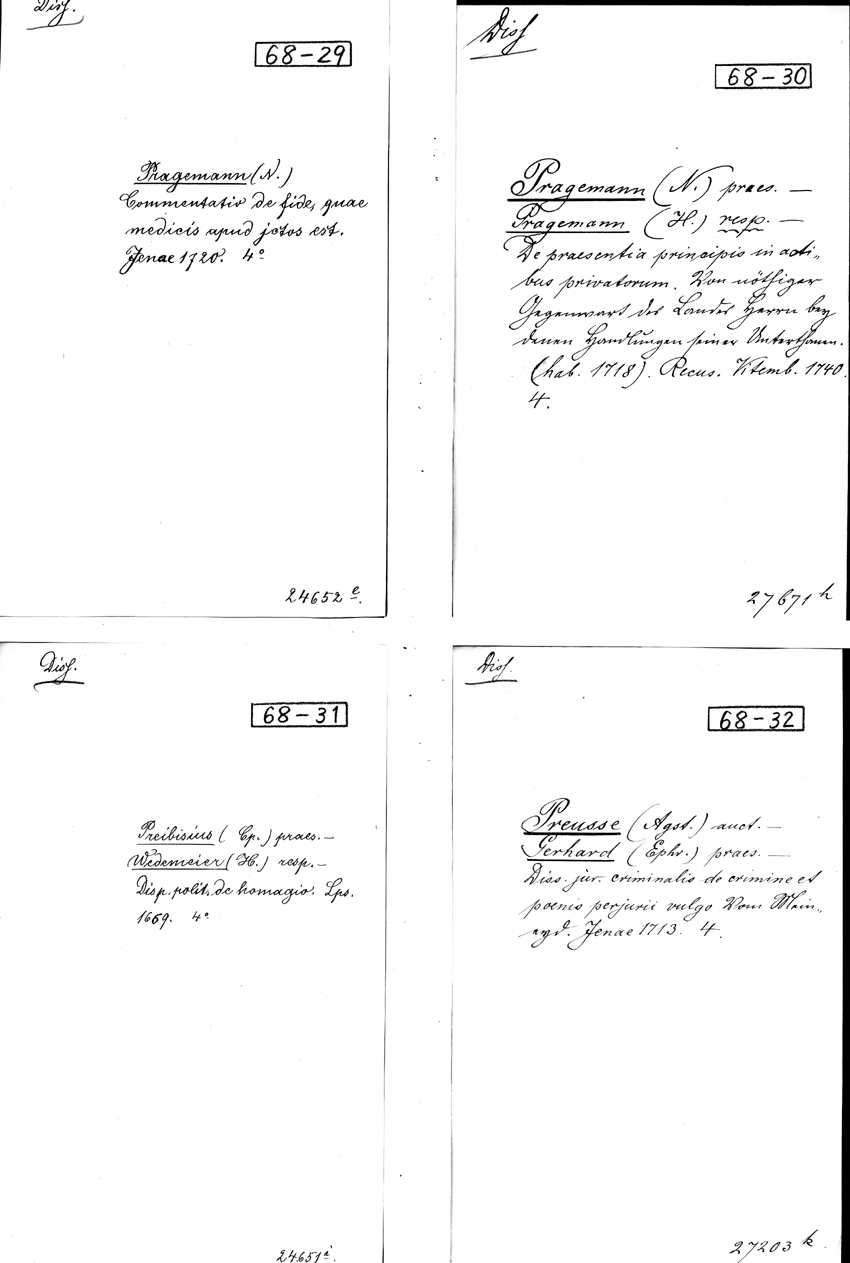 Diss.
68-29
Pragemann (N.)
Commentatio de fide, quae
medicis apud jctos est.
Jenae 1720. 4°
24652 e.
Diss
68-30
Pragemann (N.) praes. —
Pragemann (H.) resp. —
De praesentia principis in acti„
bus privatorum. Von nöthiger
Gegenwart des Landes Herrn bey
denen Handlungen seiner Unterthanen.
(hab. 1718). Recus. Vitemb. 1740.
4.
27671 h
Diss.
68-31
Preibisius (Cp.) praes. —
Wedemeier (H.) resp. —
Disp. polit. de homagio. Lps.
1669. 4°
24651 i.
Diss.
68-32
Preusse (Agst.) auct. —
Gerhard (Ephr.) praes. —
Diss. jur. criminalis de crimine et
poenis perjurii vulgo Vom Mein„
eyd. Jenae 1713. 4.
27203 k.